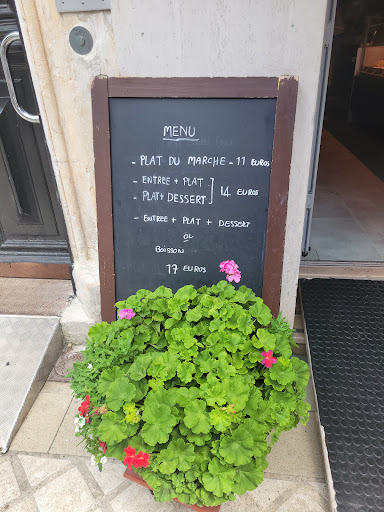 MENU
- PLAT DU MARCHE - 11 EUROS
- ENTREE + PLAT
- PLAT + DESSERT ] 14 EUROS
- ENTREE + PLAT + DESSERT
OU
BOISSON
17 EUROS